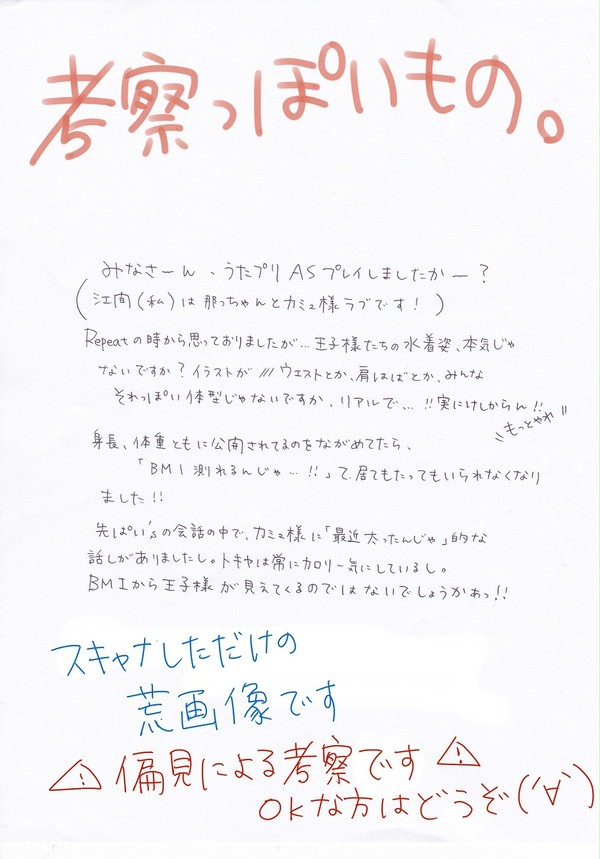 考察っぽいもの。
みなさーん、うたプリASプレイしましたかー?
(江間(私)は那っちゃんとカミュ様ラブです!)
Repeatの時から思っておりましたが…王子様たちの水着姿、本気じゃ
ないですか?イラストが///ウエストとか、肩はばとか、みんな
それっぽい体型じゃないですか、リアルで…!!実にけしからん!!
\\もっとやれ//
身長、体重ともに公開されてるのをながめてたら、
「BMI測れるんじゃ…!!」て、居てもたってもいられなくなり
ました!!
先ぱい'sの会話の中で、カミュ様に「最近太ったんじゃ」的な
話しがありましたし。トキヤは常にカロリー気にしているし。
BMIから王子様が見えてくるのではないでしょうかぁっ!!
スキャナしただけの
荒画像です
⚠偏見による考察です⚠
OKな方はどうぞ('∀`)